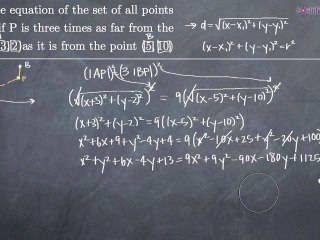 e equation of the set of all points
if P is three times as far from the
3|2) as it is from the point (5, 10)
A
B
→ d = √(x-x₁)²+(y-y₁)²
(x-x₁)²+(y-y₁)² = r²
B
P
(|AP|)² = (3 |BP|)²
(√(x+3)²+(y-2)²)² = 9(√(x-5)²+(y-10)²)²
(x+3)²+(y-2)² = 9((x-5)²+(y-10)²)
x²+6x+9+y²-4y+4 = 9(x²-10x+25+y²-20y+100
x²+y²+6x-4y+13 = 9x²+9y²-90x-180y+1125